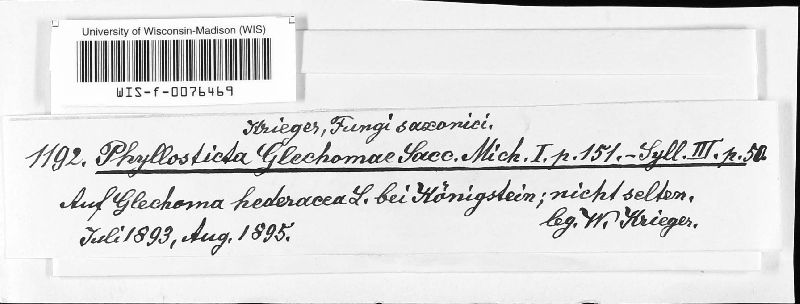 University of Wisconsin-Madison (WIS)
WIS-f-0076469
Krieger, Fungi saxonici.
1192. Phyllosticta Glechomae Sacc. Mich. I. p. 151. - Syll. III. p. 50.
Auf Glechoma hederacea L. bei Königstein; nicht selten.
Juli 1893, Aug. 1895.
leg. W. Krieger.